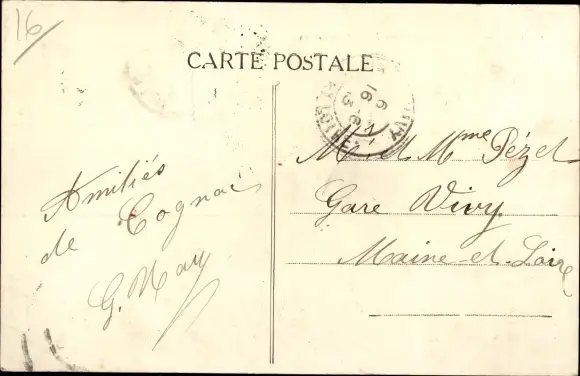 16
CARTE POSTALE
Amitiés
de Cognac
G. May
M. et Mme Pézet
Gare Vivy
Maine-et-Loire